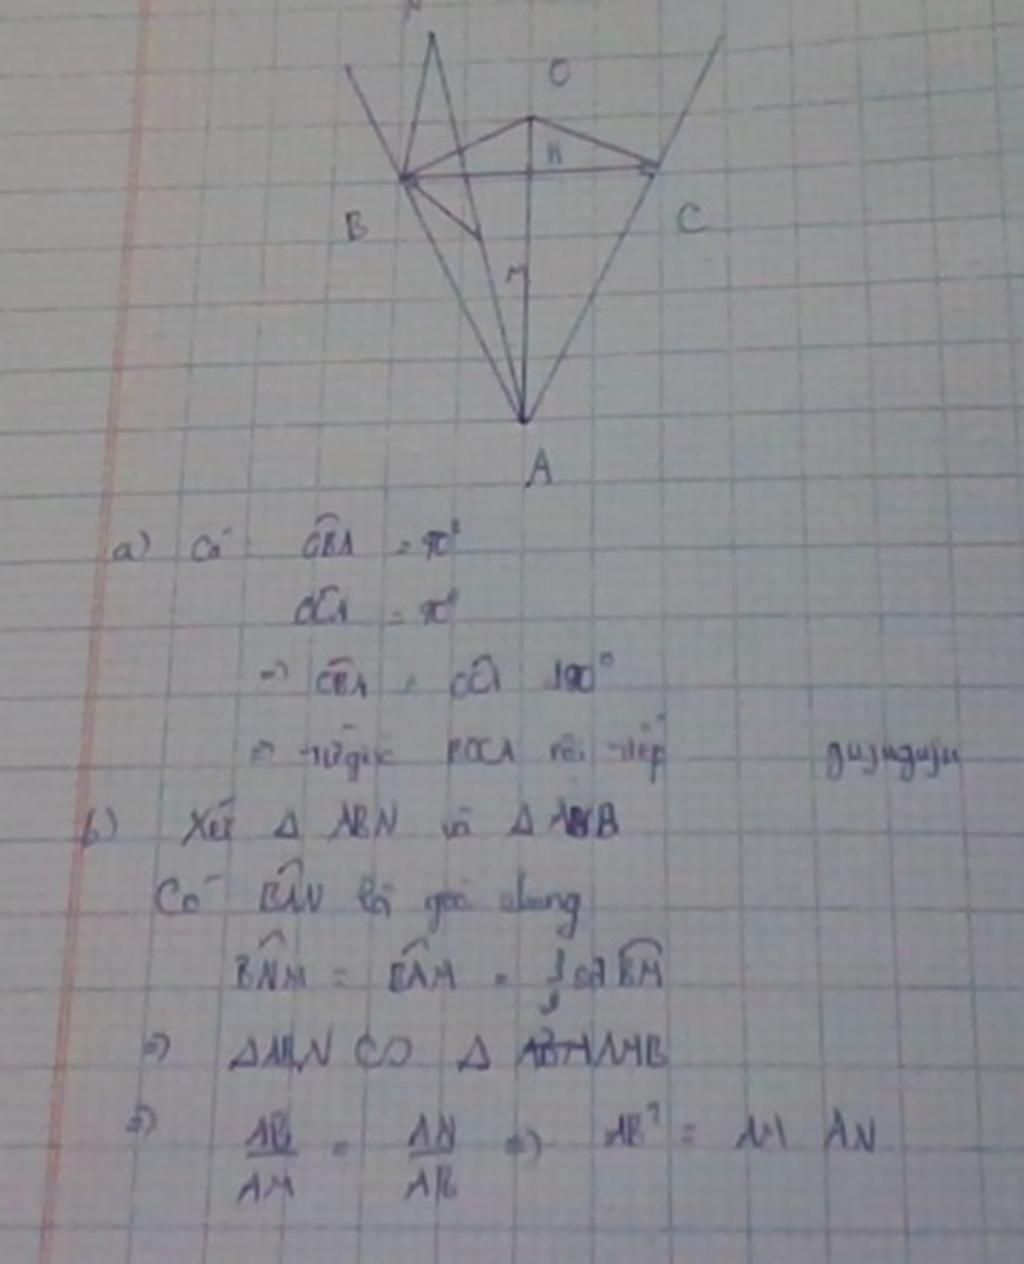 N
O
H
B
C
M
A
a) Có OBA = 90°
OCA = 90°
=> OBA + OCA 180°
=> tứ giác BOCA nội tiếp gujuguju
b) Xét Δ ABN và Δ AMB
Có BAN là góc chung
BNM = BAM = 1/2 sđ BM
=> ΔABN ∽ Δ AMB
=> AB/AM = AN/AB => AB² = AM AN